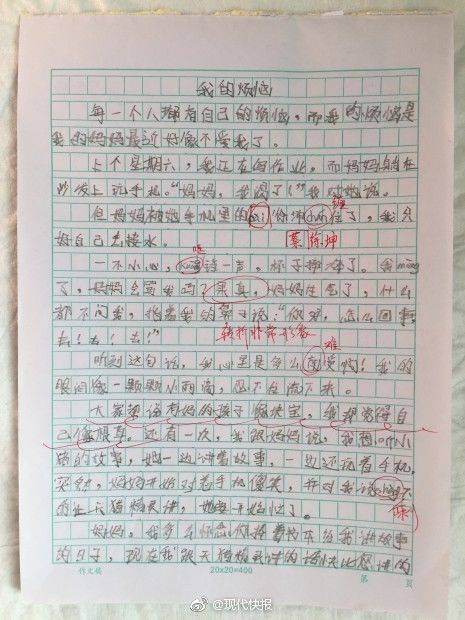 我的烦恼
每一个人都有自己的烦恼，而我的烦恼是
我的妈妈最近好像不爱我了。
上个星期六，我正在写作业，而妈妈躺在
沙发上玩手机。“妈妈，我渴了！”我对她说。
但妈妈被她手机里的 你 住了，我只
缠
好自己去接水。
蔡徐坤
一不小心，kuāng 一声，杯子摔碎了。我
了，妈妈会骂我吗？果真，妈妈生气了，什么
都不问我，指着我的鼻子说：“你呀，怎么回事，
去！去！去！”
转折非常形象
难
听到这句话，我心里是多么南受啊！我的
眼泪像一颗颗小雨滴，忍不住流下来。
大家都说有妈的孩子像块宝，我却觉得自
己像根草。还有一次，我跟妈妈说，我想听小
猪的故事，她一边讲着故事，一边还玩着手机，
突然，妈妈开始对着手机傻笑，并对我说
天猫精灵讲，她
妈妈，我多么怀念你捧着书本给我讲故事
的日子，现在我跟天猫精灵讲的话快比您讲的
作文稿
20×20=400
第 页
@现代快报